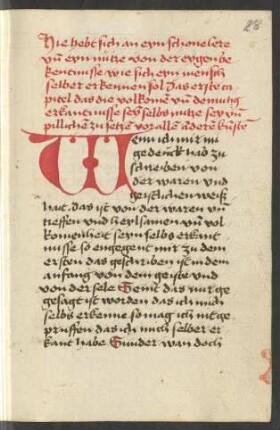 28
Hie hebt sich an eyn schone lere
vn̄ eyn nütze von der eygen be
kentnisse wie sich eyn mensch
selber erkennen sol Das erste ca
pitel das die volkomē vn̄ demutig
erkantnisse seyn selbs nutze sey vn̄
pillichen zu setzē vor allē anderē kunstē
Wenn ich mir für
gedenck hab zu
schreiben von
der waren und
geistlichen weiß
hait. das ist von der waren vn
treffen und heylsamen vn̄ vol
komenheit seyn selbs erkant
nisse so engegent mir zu dem
ersten das geschriben ist in dem
anfang von dem geiste und
von der sele Seint das nur ge
gesagt ist worden das ich mich
selbs erkenne so mag ich nit ge
prüffen das ich mich selber er
kant habe Sunder wan doch